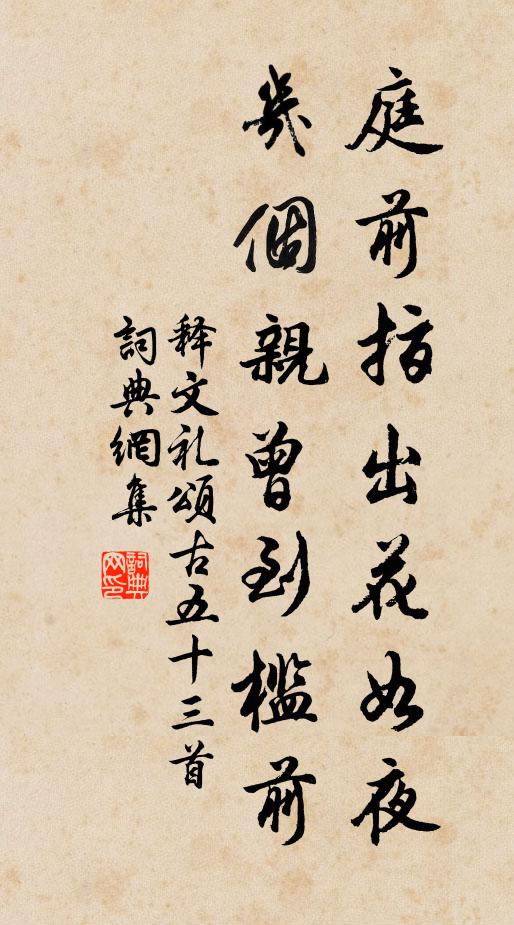 庭前指出花如夜
幾個親曾到檻前
释文礼頌古五十三首
詞典網集
詞典網印